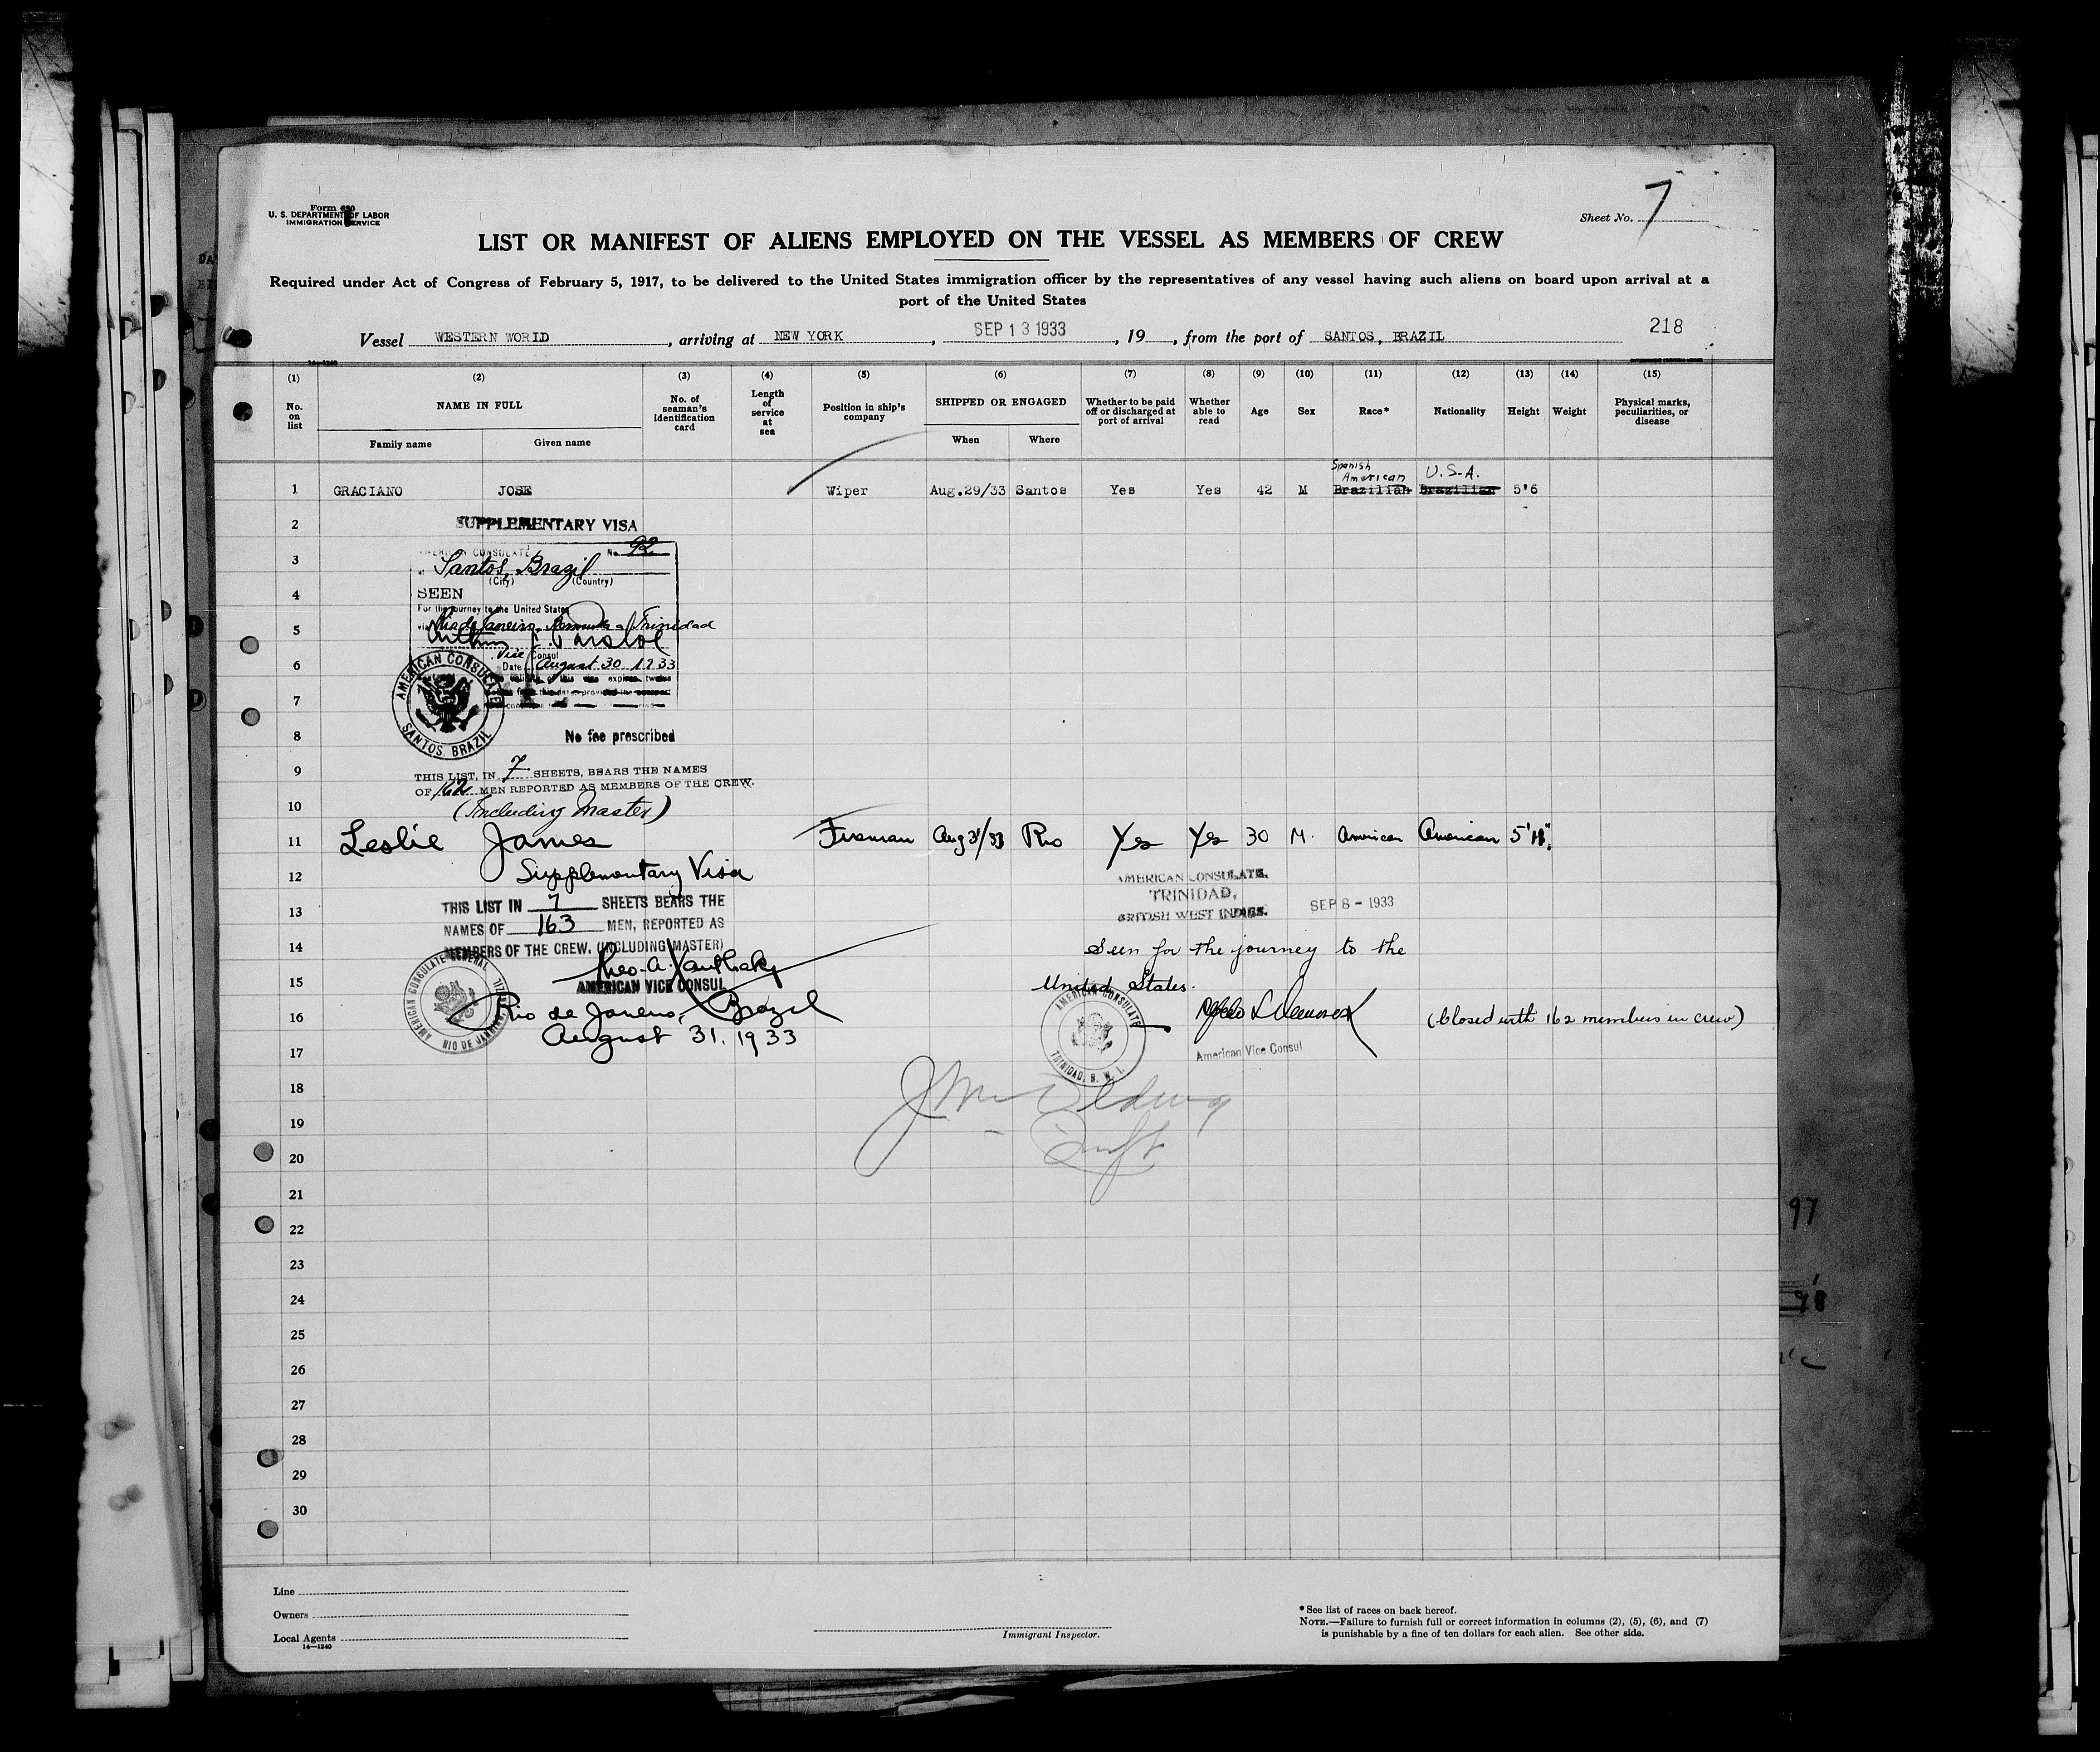 Form 680
U. S. DEPARTMENT OF LABOR
IMMIGRATION SERVICE
Sheet No. 7
LIST OR MANIFEST OF ALIENS EMPLOYED ON THE VESSEL AS MEMBERS OF CREW
Required under Act of Congress of February 5, 1917, to be delivered to the United States immigration officer by the representatives of any vessel having such aliens on board upon arrival at a
port of the United States
Vessel WESTERN WORLD, arriving at NEW YORK, SEP 13 1933, 19 , from the port of SANTOS, BRAZIL
218
14—1240
(1) (2) (3) (4) (5) (6) (7) (8) (9) (10) (11) (12) (13) (14) (15)
No. on list
NAME IN FULL
Family name Given name
No. of seaman's identification card
Length of service at sea
Position in ship's company
SHIPPED OR ENGAGED
When Where
Whether to be paid off or discharged at port of arrival
Whether able to read
Age
Sex
Race*
Nationality
Height
Weight
Physical marks, peculiarities, or disease
Spanish American U.S.A.
1 GRACIANO JOSE Wiper Aug.29/33 Santos Yes Yes 42 M Brazilian Brazilian 5'6
2
SUPPLEMENTARY VISA
AMERICAN CONSULATE No. 92
3
Santos, Brazil
(City) (Country)
4
SEEN
For the journey to the United States
5
via Rio de Janeiro, Bermuda, Trinidad
Vice Consul
6
Date August 30 1933
7
AMERICAN CONSULATE
SANTOS, BRAZIL
8
No fee prescribed
9
THIS LIST, IN 7 SHEETS, BEARS THE NAMES
OF 162 MEN REPORTED AS MEMBERS OF THE CREW.
10
(Including Master)
11 Leslie James Fireman Aug 31/33 Rio Yes Yes 30 M. American American 5'
12
Supplementary Visa
AMERICAN CONSULATE,
TRINIDAD,
BRITISH WEST INDIES.
SEP 8 - 1933
13
THIS LIST IN 7 SHEETS BEARS THE
NAMES OF 163 MEN, REPORTED AS
MEMBERS OF THE CREW. (INCLUDING MASTER)
14
Seen for the journey to the
United States.
15
AMERICAN VICE CONSUL
AMERICAN CONSULATE GENERAL
RIO DE JANEIRO, BRAZIL
16
Rio de Janeiro, Brazil
August 31, 1933
AMERICAN CONSULATE
TRINIDAD, B. W. I.
(Closed with 162 members in crew)
17
American Vice Consul
18
19
20
21
22
23
24
25
26
27
28
29
30
97
98
Line
Owners
Local Agents
14—1240
Immigrant Inspector.
* See list of races on back hereof.
NOTE.—Failure to furnish full or correct information in columns (2), (5), (6), and (7)
is punishable by a fine of ten dollars for each alien. See other side.